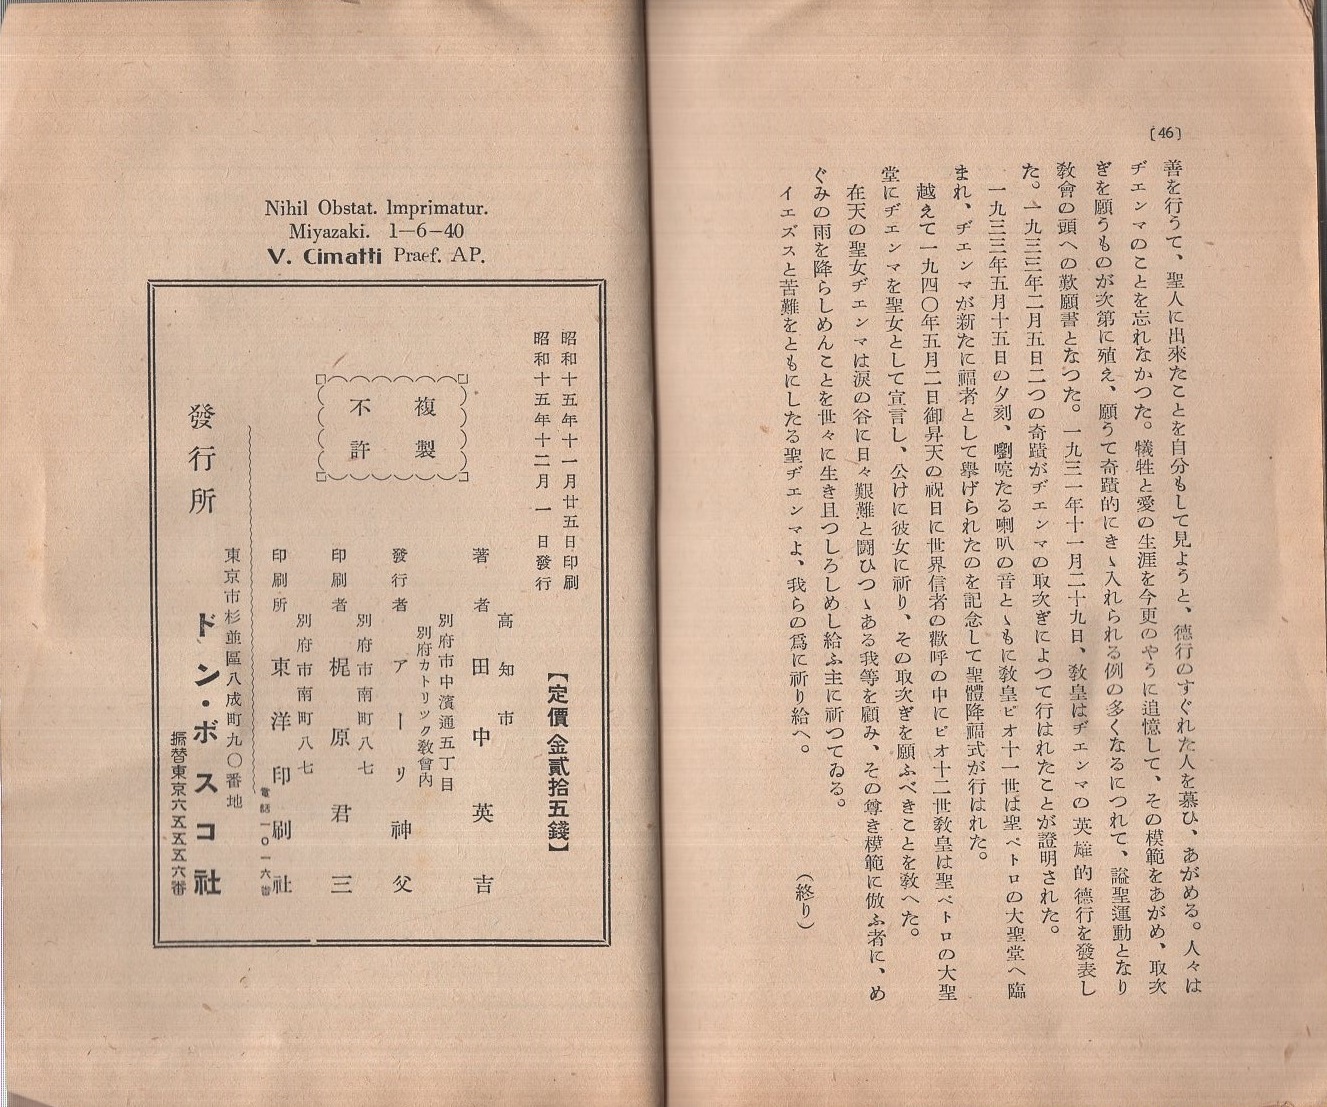 [46]
善を行うて、聖人に出來たことを自分もして見ようと、德行のすぐれた人を慕ひ、あがめる。人々は
ヂエンマのことを忘れなかつた。犠牲と愛の生涯を今更のやうに追憶して、その模範をあがめ、取次
ぎを願うものが次第に殖え、願うて奇蹟的にきゝ入れられる例の多くなるにつれて、諡聖運動となり
敎會の頭への歎願書となつた。一九三一年十一月二十九日、敎皇はヂエンマの英雄的德行を發表し
た。一九三三年二月五日二つの奇蹟がヂエンマの取次ぎによつて行はれたことが證明された。
一九三三年五月十五日の夕刻、嚠喨たる喇叭の音とゝもに敎皇ピオ十一世は聖ペトロの大聖堂へ臨
まれ、ヂエンマが新たに福者として擧げられたのを記念して聖體降福式が行はれた。
越えて一九四〇年五月二日御昇天の祝日に世界信者の歡呼の中にピオ十二世敎皇は聖ペトロの大聖
堂にヂエンマを聖女として宣言し、公けに彼女に祈り、その取次ぎを願ふべきことを敎へた。
在天の聖女ヂエンマは淚の谷に日々艱難と鬪ひつゝある我等を顧み、その尊き模範に倣ふ者に、め
ぐみの雨を降らしめんことを世々に生き且つしろしめし給ふ主に祈つてゐる。
イエズスと苦難をともにしたる聖ヂエンマよ、我らの爲に祈り給へ。
(終り)
Nihil Obstat. Imprimatur.
Miyazaki. 1—6—40
V. Cimatti Praef. AP.
昭和十五年十一月廿五日印刷
昭和十五年十二月一日發行
【定價金貳拾五錢】
複製
不許
高知市
著者 田中英吉
別府市中濱通五丁目
別府カトリック敎會内
發行者 アーリ神父
別府市南町八七
印刷者 梶原君三
別府市南町八七
印刷所 東洋印刷社
電話一〇一六番
東京市杉並區八成町九〇番地
發行所 ドン・ボスコ社
振替東京六五五五六番